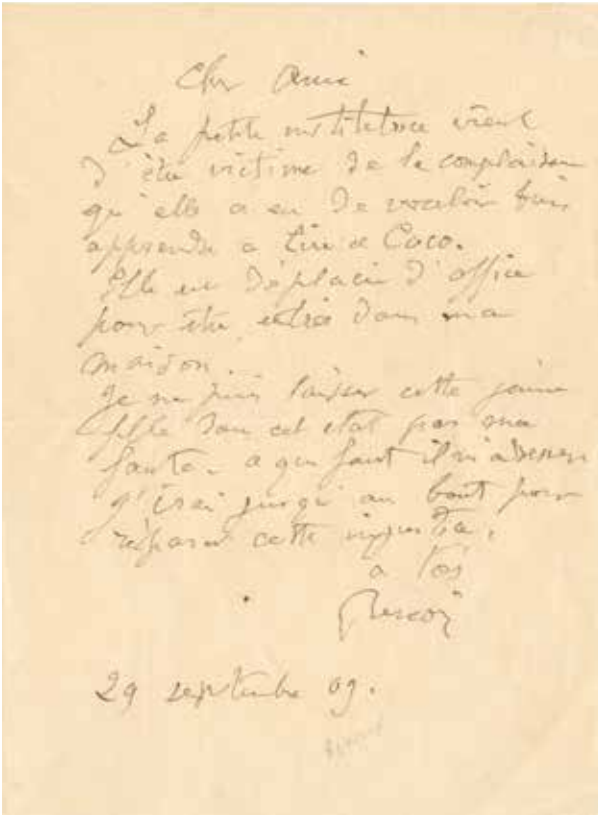 Cher Ami
La petite institutrice vient
d'être victime de la complaisance
qu'elle a eu de vouloir bien
apprendre a lire a Coco.
Elle est déplacée d'office
pour être entrée dans ma
maison.
Je ne puis laisser cette jeune
fille dans cet etat par ma
faute. a qui faut il m'adresser
j'irai jusqu'au bout pour
réparer cette injustice.
a toi
Renoir
29 septembre 09.